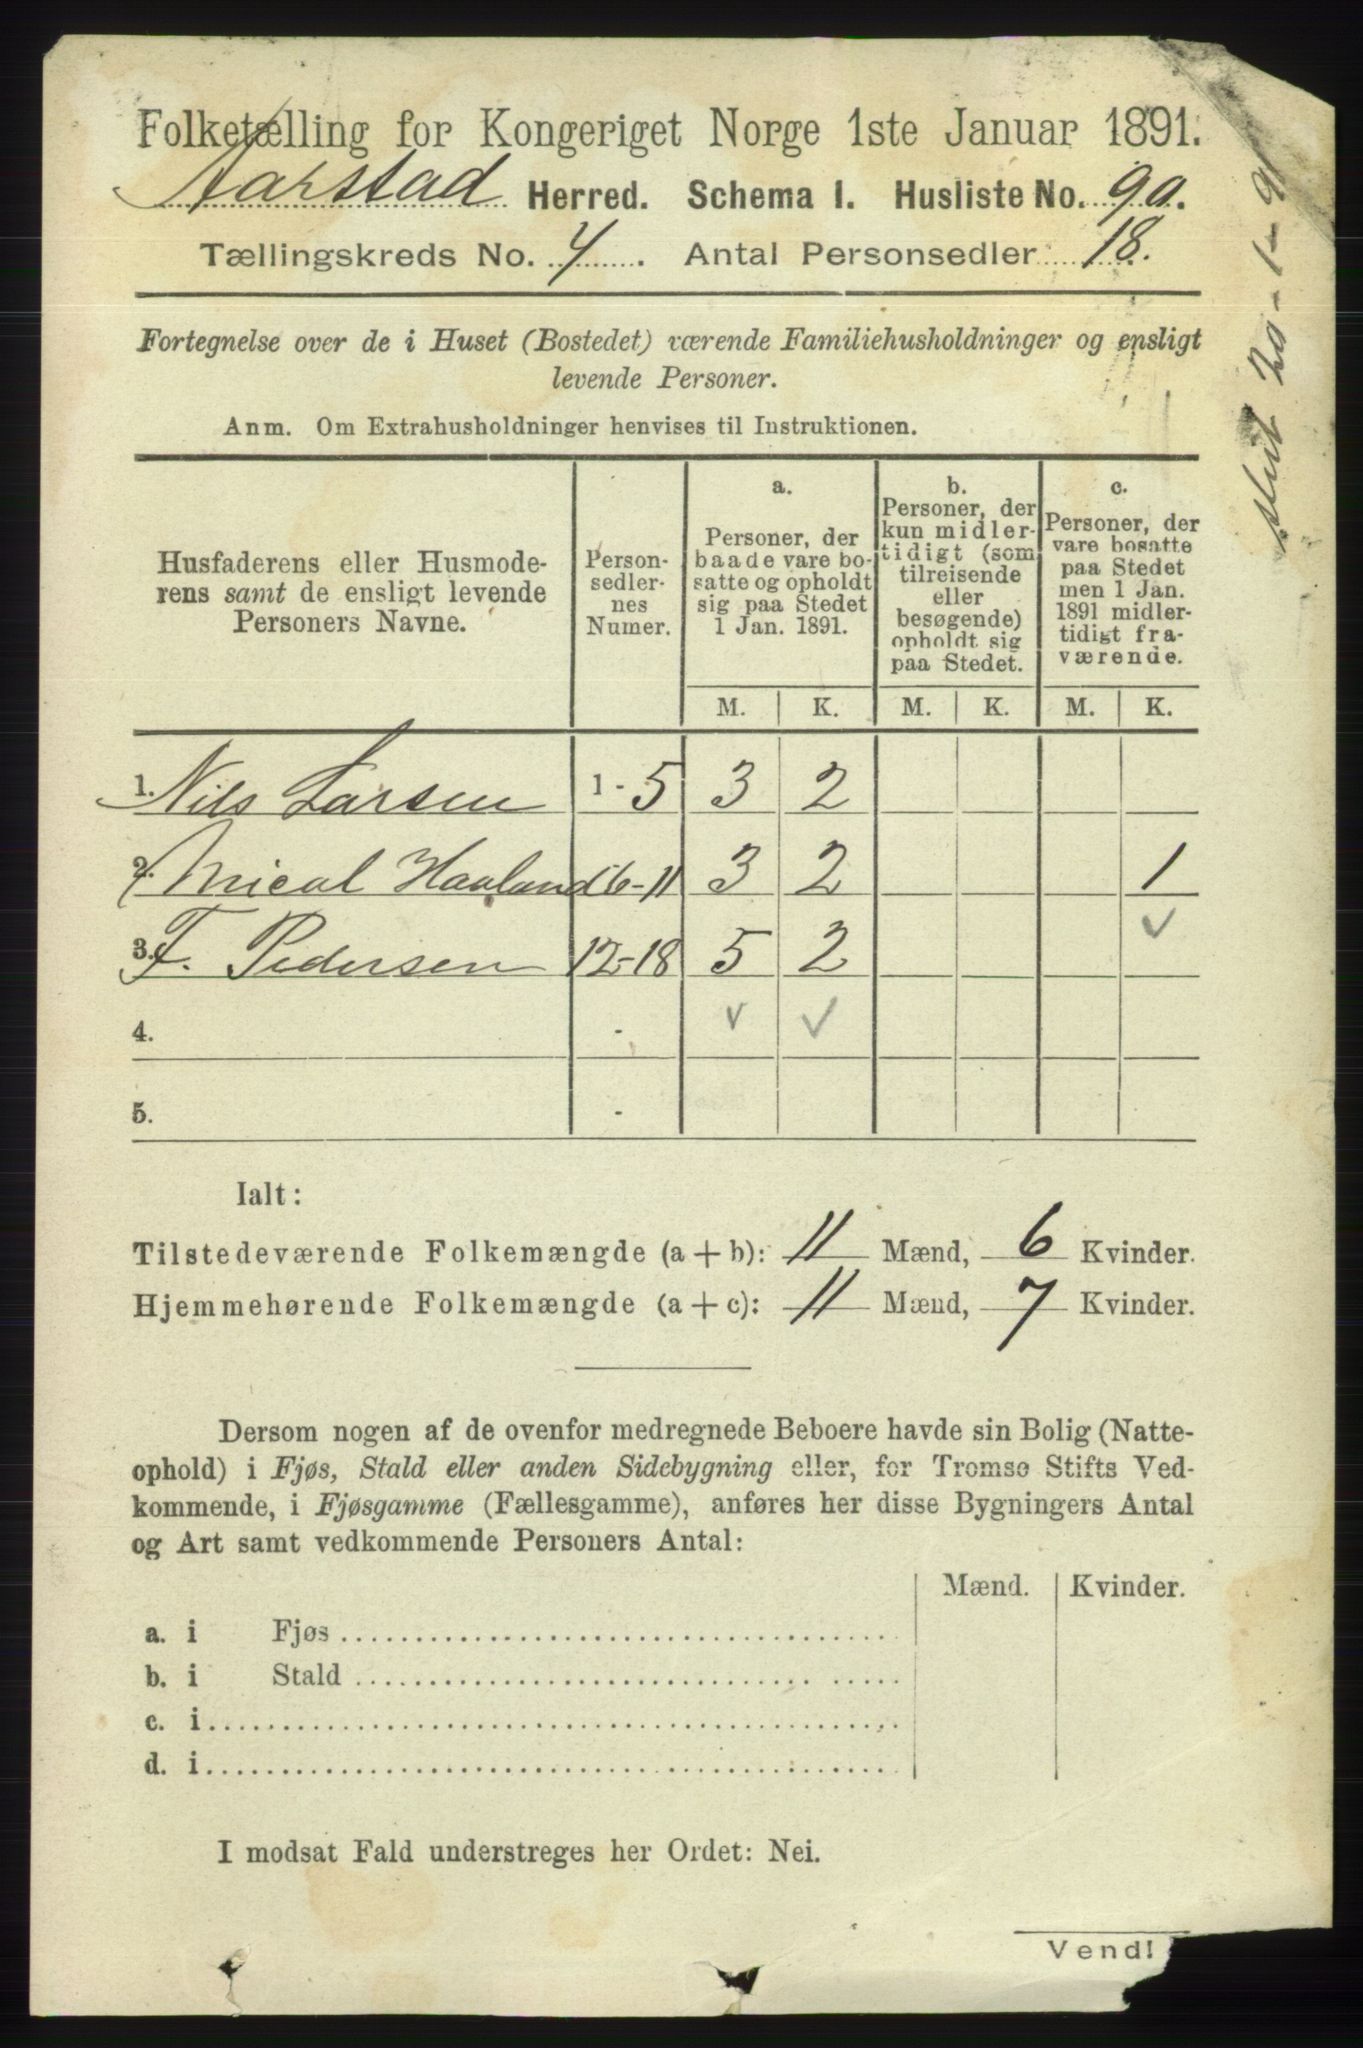 Folketælling for Kongeriget Norge 1ste Januar 1891.
Aarstad Herred. Schema I. Husliste No. 90.
Tællingskreds No. 4. Antal Personsedler 18.
20-1-91
Fortegnelse over de i Huset (Bostedet) værende Familiehusholdninger og ensligt
levende Personer.
Anm. Om Extrahusholdninger henvises til Instruktionen.
Husfaderens eller Husmode-
rens samt de ensligt levende
Personers Navne.
Person-
sedler-
nes
Numer.
a.
Personer, der
baade vare bo-
satte og opholdt
sig paa Stedet
1 Jan. 1891.
b.
Personer, der
kun midler-
tidigt (som
tilreisende
eller
besøgende)
opholdt sig
paa Stedet.
c.
Personer, der
vare bosatte
paa Stedet
men 1 Jan.
1891 midler-
tidigt fra-
værende.
M. K. M. K. M. K.
1. Nils Larsen 1-5 3 2
2. Mical Haaland 6-11 3 2 1
3. F. Pedersen 12-18 5 2
4. -
5. -
Ialt:
Tilstedeværende Folkemængde (a + b): 11 Mænd, 6 Kvinder.
Hjemmehørende Folkemængde (a + c): 11 Mænd, 7 Kvinder.
Dersom nogen af de ovenfor medregnede Beboere havde sin Bolig (Natte-
ophold) i Fjøs, Stald eller anden Sidebygning eller, for Tromsø Stifts Ved-
kommende, i Fjøsgamme (Fællesgamme), anføres her disse Bygningers Antal
og Art samt vedkommende Personers Antal:
Mænd. Kvinder.
a. i Fjøs
b. i Stald
c. i
d. i
I modsat Fald understreges her Ordet: Nei.
Vend!